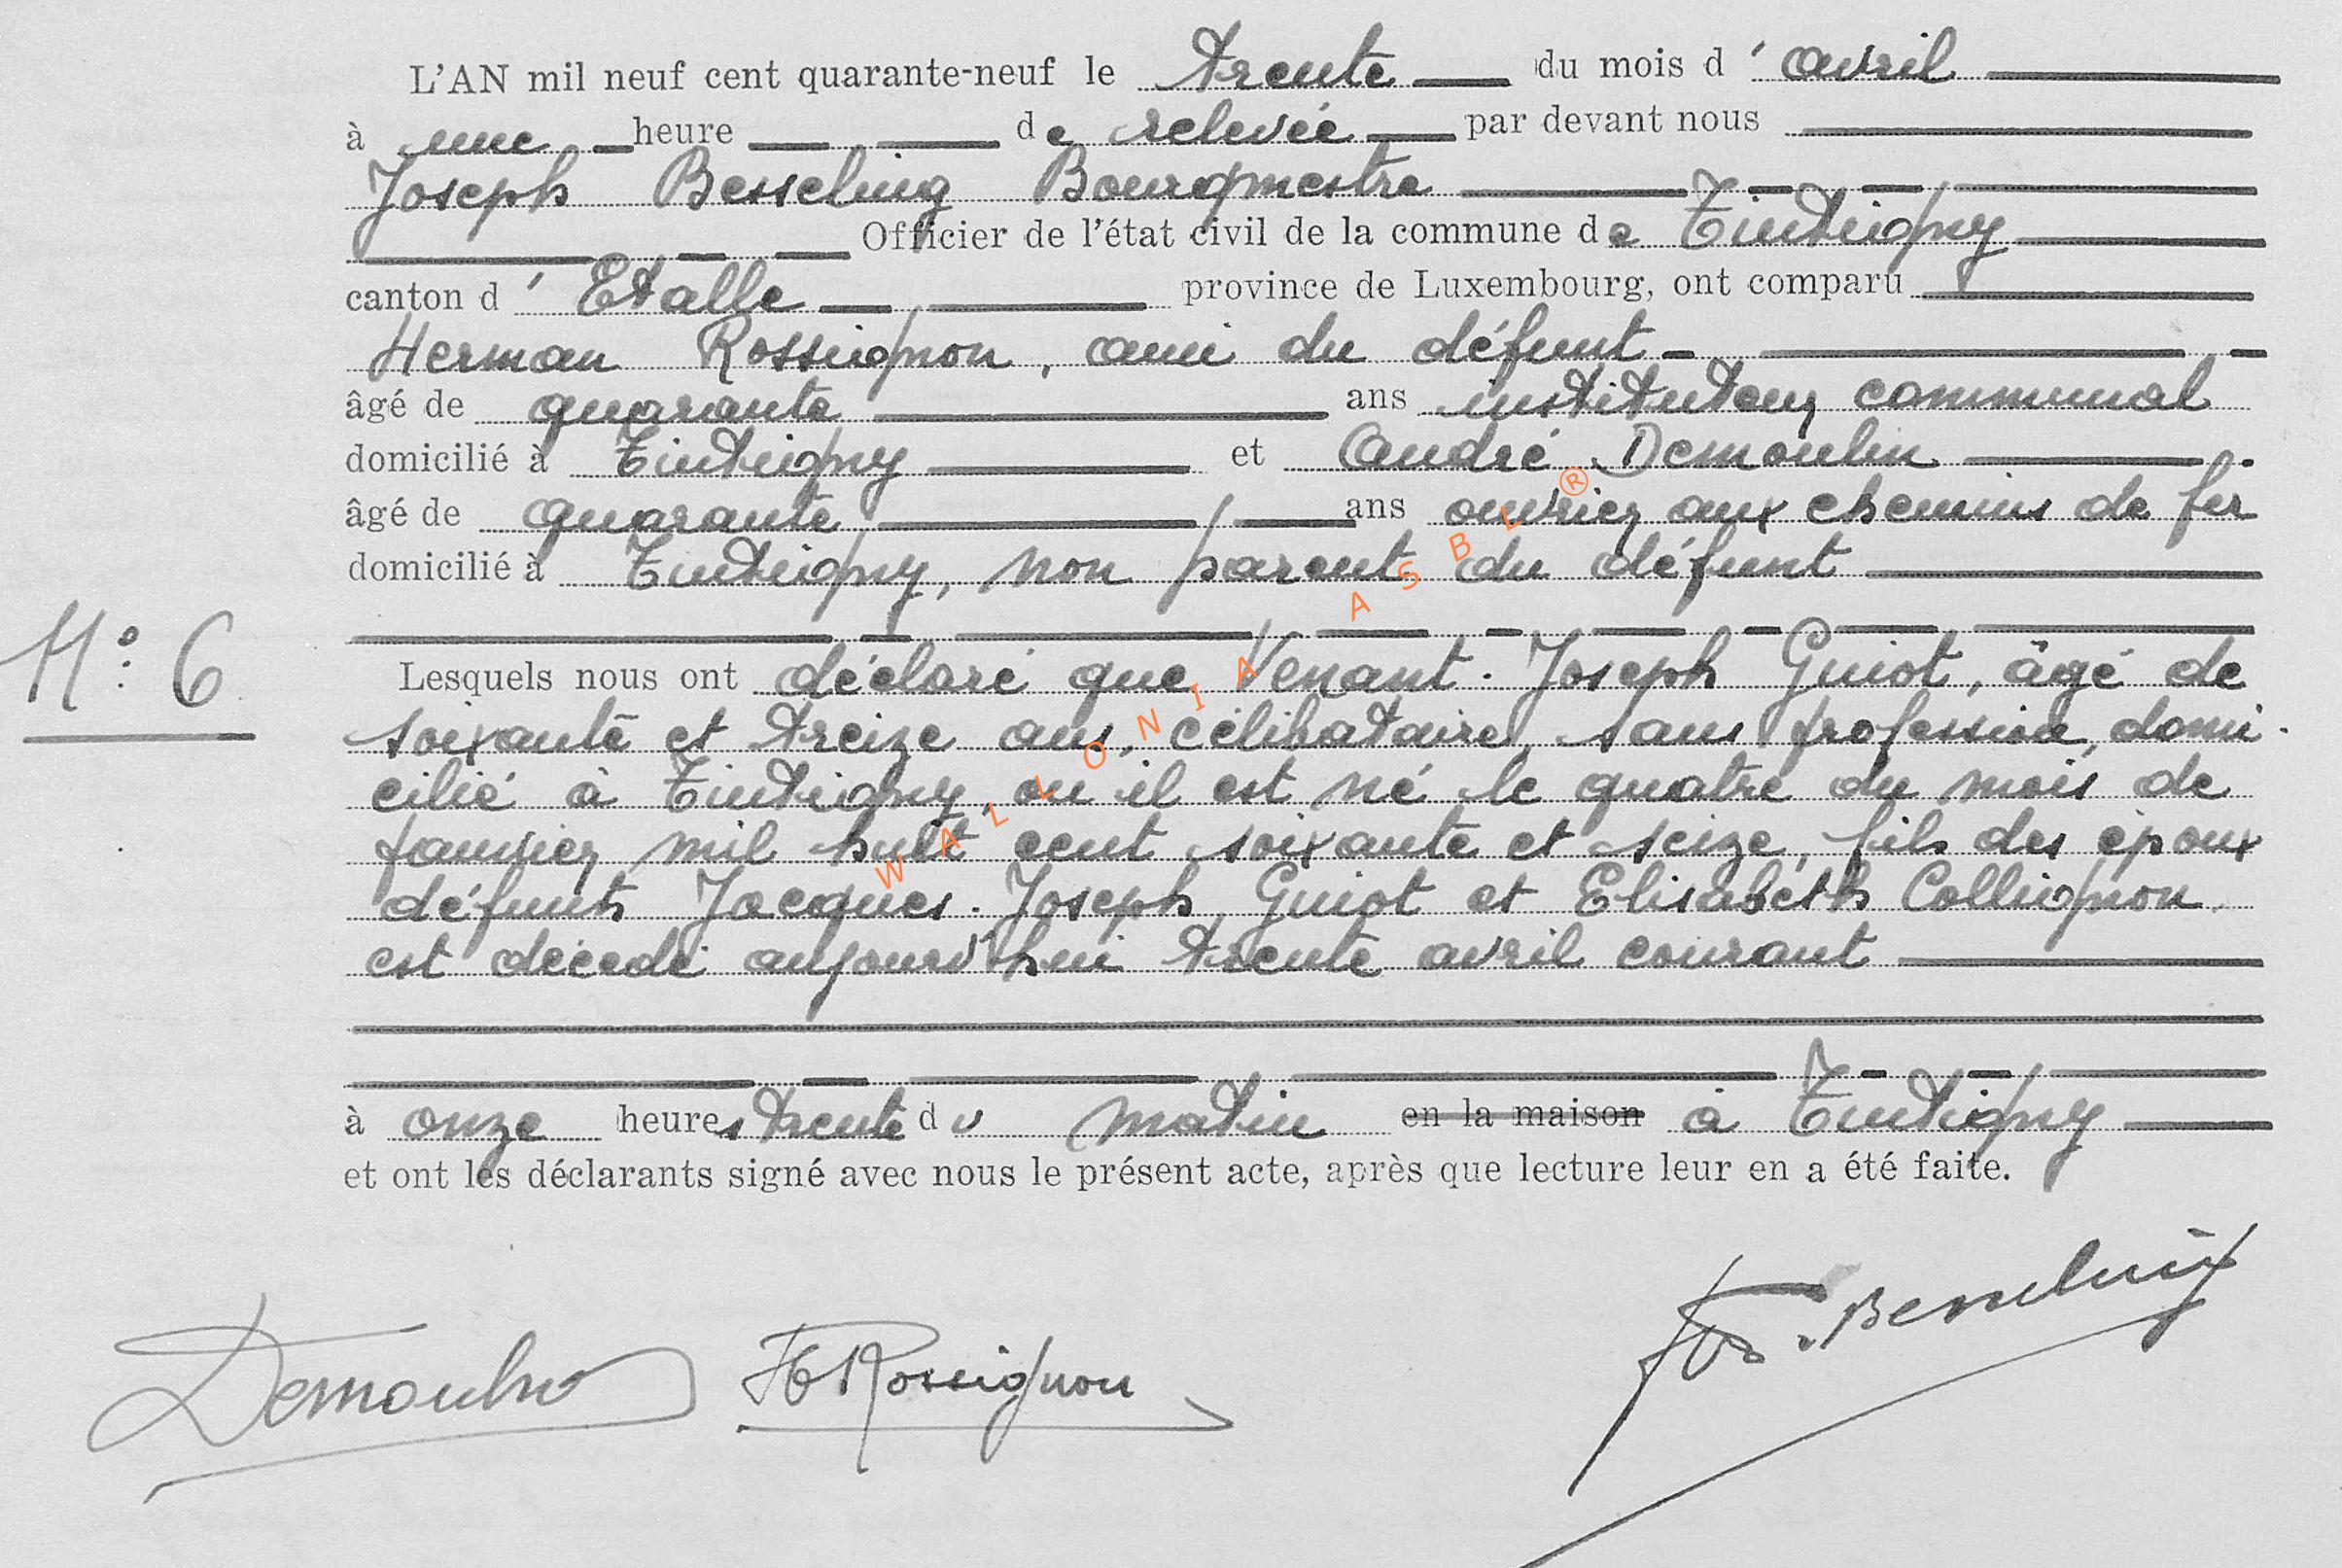 L'AN mil neuf cent quarante-neuf le trente du mois d'avril
à une heure de relevée par devant nous
Joseph Besseling Bourgmestre
Officier de l'état civil de la commune de Tintigny
canton d'Etalle province de Luxembourg, ont comparu
Herman Rossignon, ami du défunt
âgé de quarante ans instituteur communal
domicilié à Tintigny et André Demoulin
âgé de quarante ans ouvrier aux chemins de fer
domicilié à Tintigny, non parents du défunt
N° 6
Lesquels nous ont déclaré que Venant-Joseph Guiot, âgé de
soixante et treize ans, célibataire, sans profession, domi-
cilié à Tintigny, où il est né le quatre du mois de
janvier mil huit cent soixante et seize, fils des époux
défunts Jacques-Joseph Guiot et Elisabeth Collignon
est décédé aujourd'hui trente avril courant
à onze heures trente du matin en la maison à Tintigny
et ont les déclarants signé avec nous le présent acte, après que lecture leur en a été faite.
Demoulin H Rossignon Jos. Besseling
WALLONIA ASBL ®